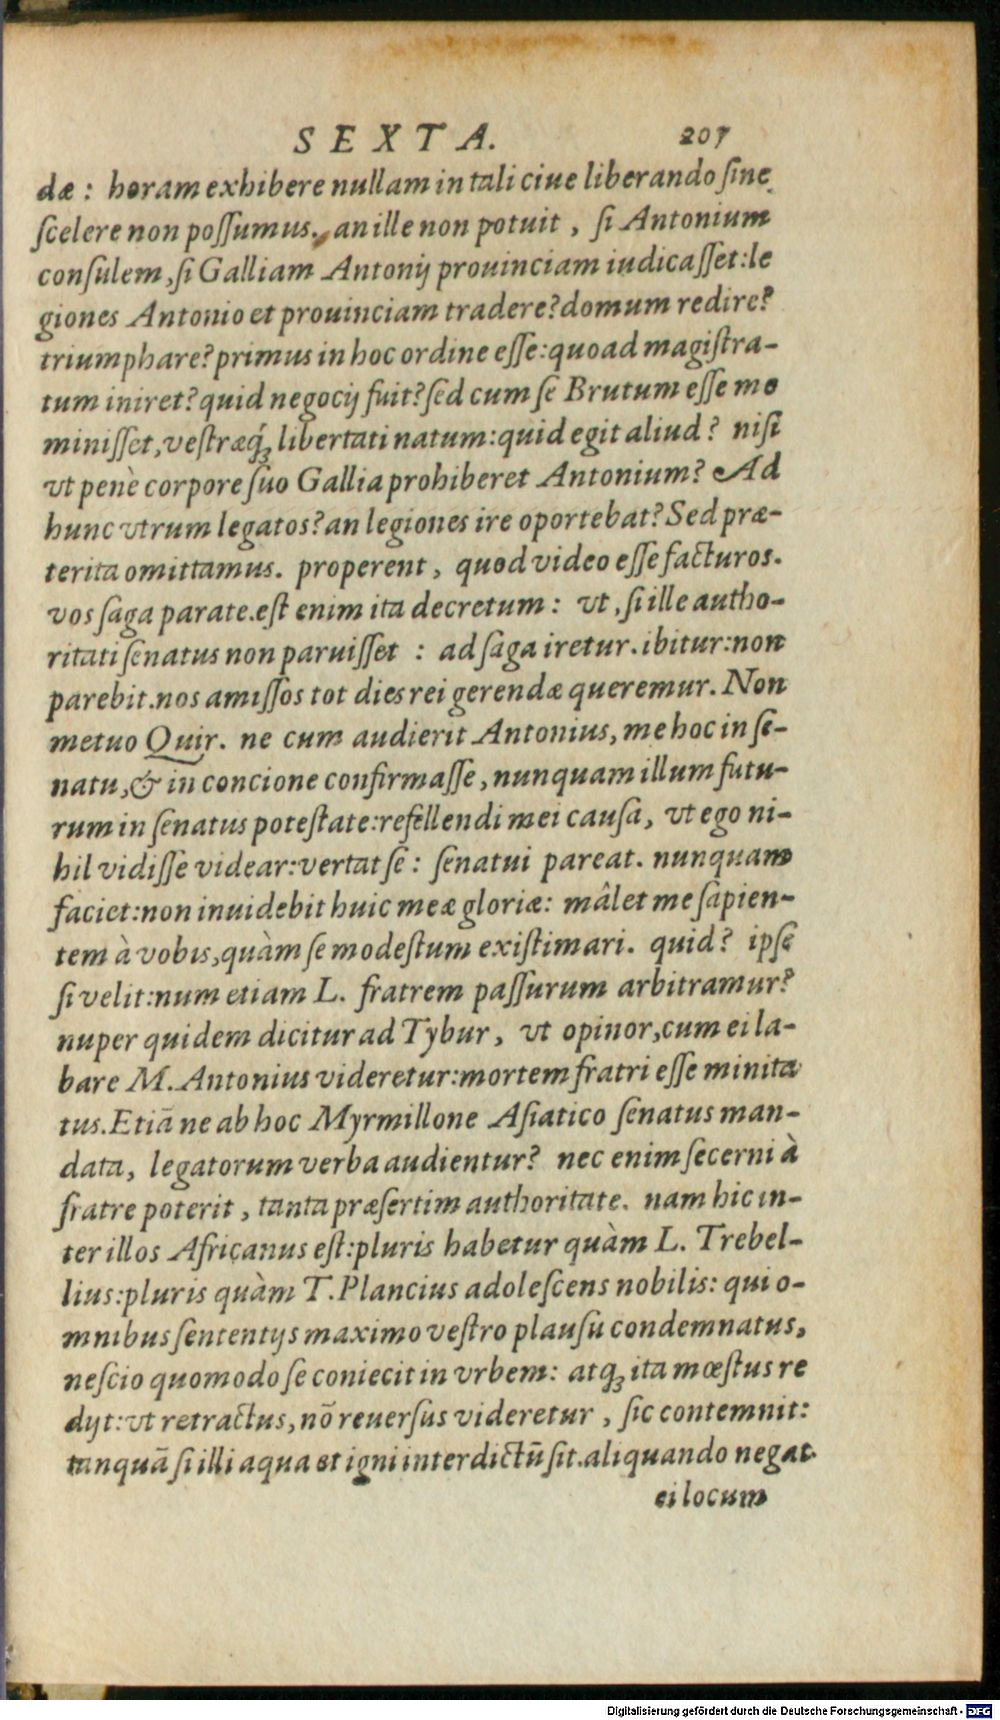 SEXTA. 207
dæ : horam exhibere nullam in tali ciue liberando ſine
ſcelere non poſſumus. an ille non potuit , ſi Antonium
conſulem, ſi Galliam Antonij prouinciam iudicaſſet:le
giones Antonio et prouinciam tradere? domum redire?
triumphare? primus in hoc ordine eſſe: quoad magiſtra-
tum iniret? quid negocij fuit? ſed cum ſe Brutum eſſe me
miniſſet, veſtræq́ꝫ libertati natum: quid egit aliud? niſi
vt penè corpore ſuo Gallia prohiberet Antonium? Ad
hunc vtrum legatos? an legiones ire oportebat? Sed præ-
terita omittamus. properent , quod video eſſe facturos.
vos ſaga parate. eſt enim ita decretum : vt , ſi ille autho-
ritati ſenatus non paruiſſet : ad ſaga iretur. ibitur: non
parebit. nos amiſſos tot dies rei gerendæ queremur. Non
metuo Quir. ne cum audierit Antonius, me hoc in ſe-
natu, & in concione confirmaſſe, nunquam illum futu-
rum in ſenatus poteſtate: refellendi mei cauſa, vt ego ni-
hil vidiſſe videar: vertat ſe : ſenatui pareat. nunquam
faciet: non inuidebit huic meæ gloriæ: mâlet me ſapien-
tem à vobis, quàm ſe modeſtum exiſtimari. quid? ipſe
ſi velit: num etiam L. fratrem paſſurum arbitramur?
nuper quidem dicitur ad Tybur, vt opinor, cum ei la-
bare M. Antonius videretur: mortem fratri eſſe minita
tus. Etiā ne ab hoc Myrmillone Aſiatico ſenatus man-
data, legatorum verba audientur? nec enim ſecerni à
fratre poterit , tanta præſertim authoritate. nam hic in-
ter illos Africanus eſt: pluris habetur quàm L. Trebel-
lius: pluris quàm T. Plancius adoleſcens nobilis: qui o-
mnibus ſententijs maximo veſtro plauſu condemnatus,
neſcio quomodo ſe coniecit in vrbem: atqꝫ ita mœſtus re
dijt: vt retractus, nō reuerſus videretur , ſic contemnit:
tanquā ſi illi aqua et igni interdictū ſit. aliquando negat
ei locum
Digitalisierung gefördert durch die Deutsche Forschungsgemeinschaft - DFG